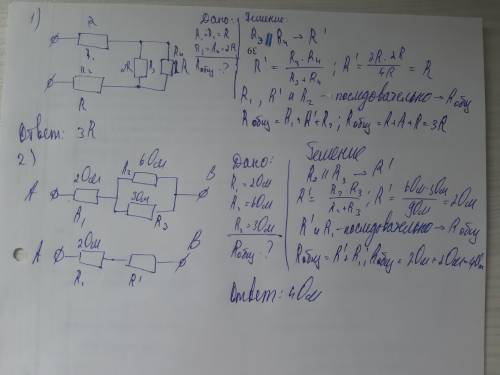 1)
R
R1
R2
R
2R
R3
R4
2R
Дано:
R1=R2=R
R3=R4=2R
Rобщ-?
Решение:
R3 || R4 → R'
эв
R' = R3·R4 / R3+R4 ; R' = 2R·2R / 4R = R
R1, R' и R2 - последовательно → Rобщ
Rобщ = R1+R'+R2 ; Rобщ = R+R+R = 3R
Ответ: 3R
2)
A
2Ом
R1
R2
6Ом
3Ом
R3
B
A
2Ом
R1
R'
B
Дано:
R1=2Ом
R2=6Ом
R3=3Ом
Rобщ-?
Решение
R2 || R3 → R'
R' = R2·R3 / R2+R3 ; R' = 6Ом·3Ом / 9Ом = 2Ом
R' и R1 - последовательно → Rобщ
Rобщ = R'+R1; Rобщ = 2Ом+2Ом=4Ом
Ответ: 4Ом